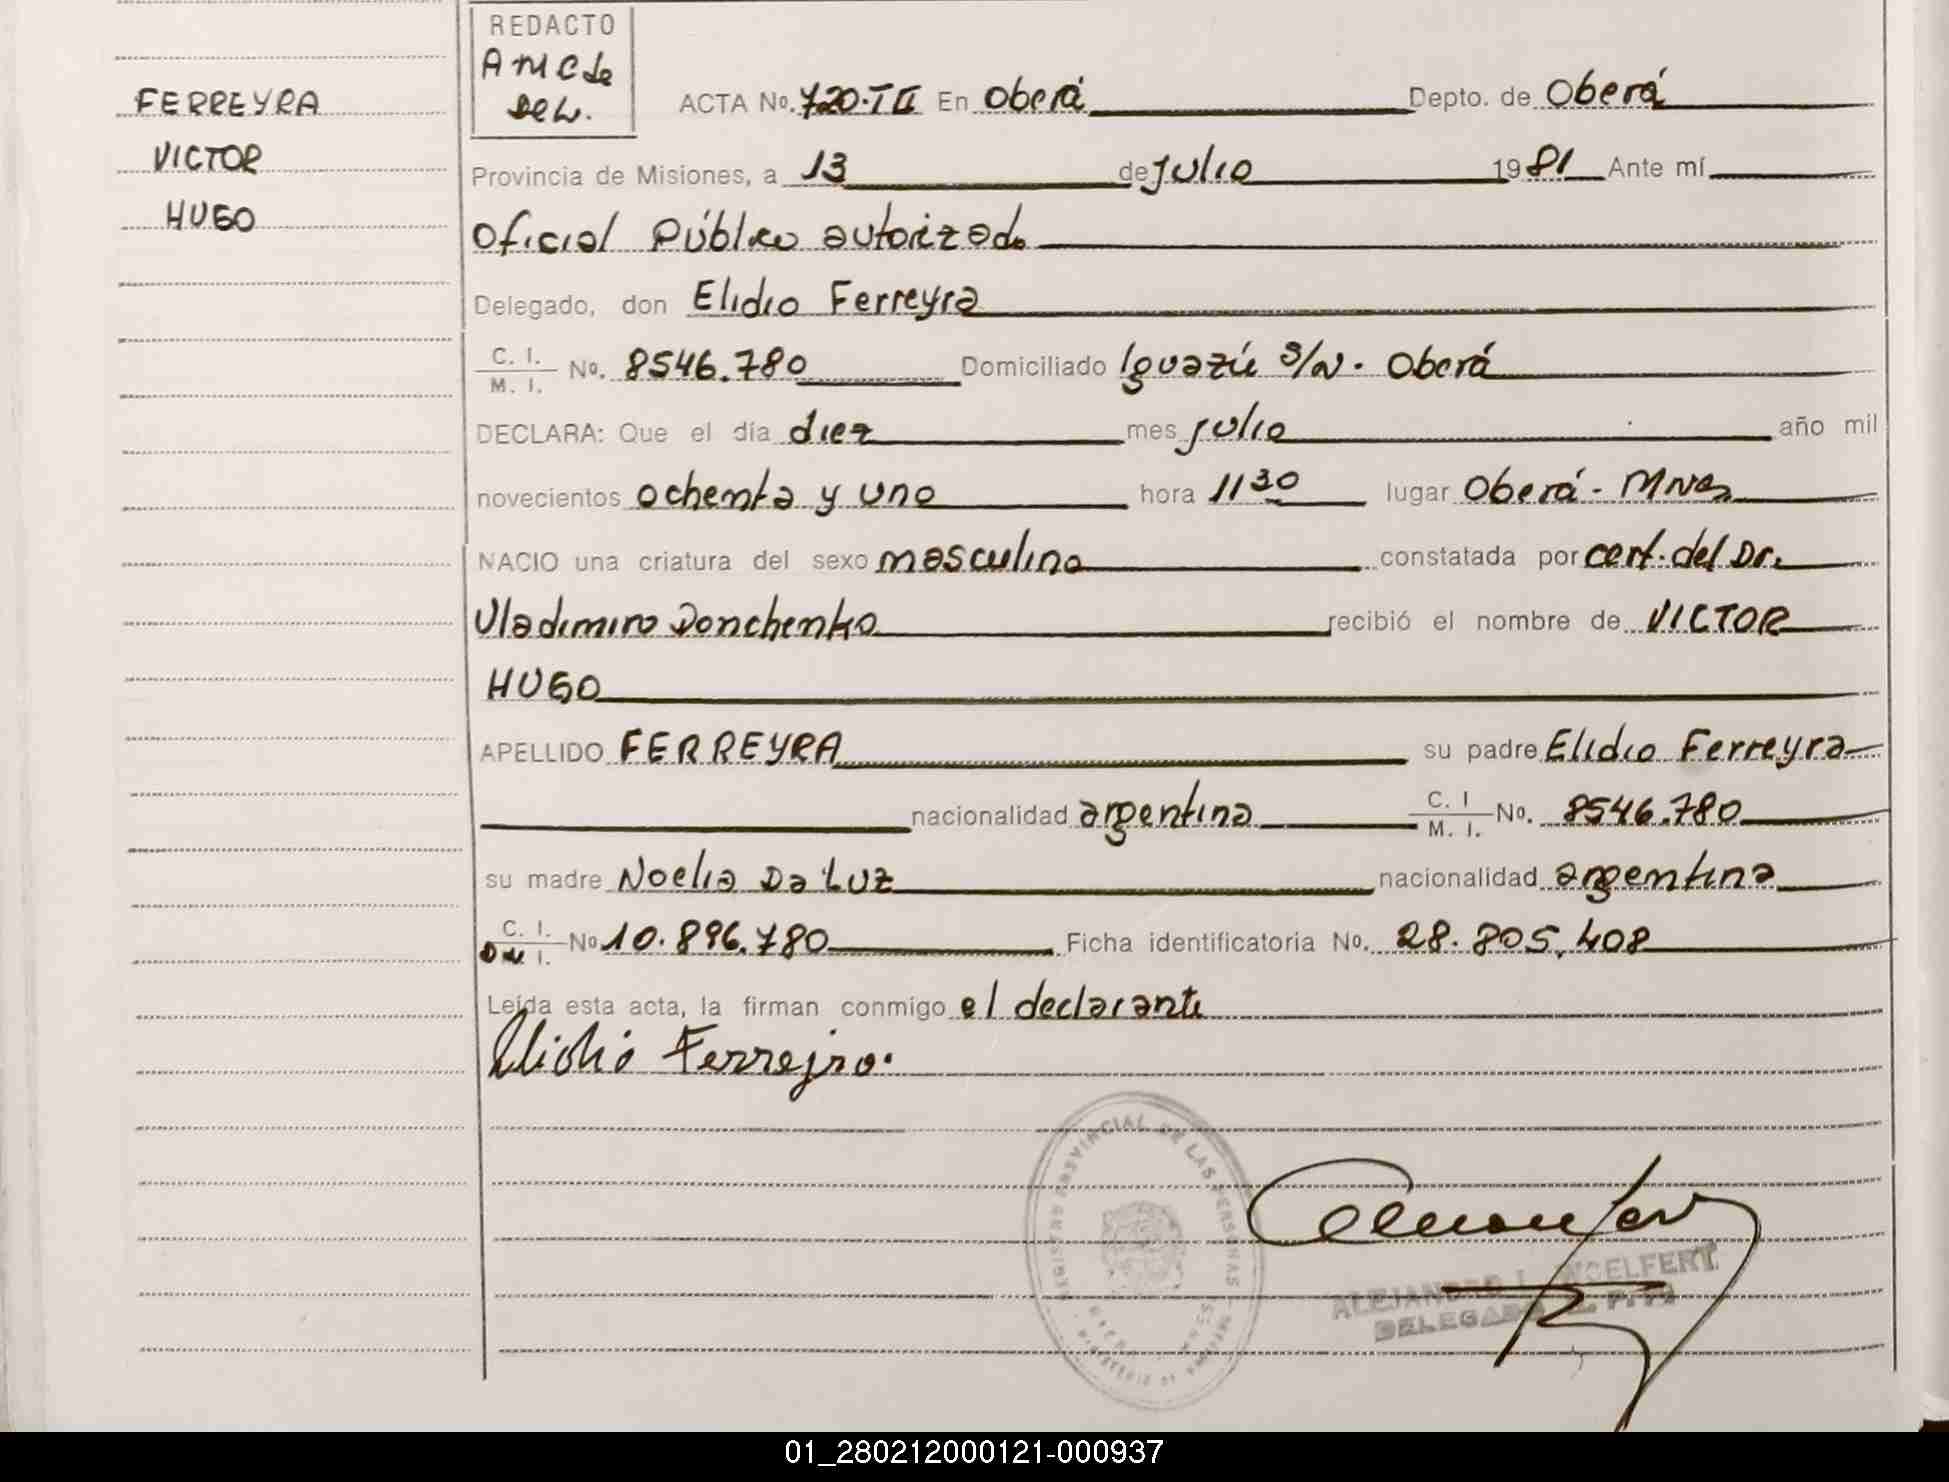 FERREYRA
VICTOR
HUGO
REDACTO
AMC de
ACTA No. 720-TII En Oberá Depto. de Oberá
Provincia de Misiones, a 13 de julio 1981 Ante mí
Oficial Público autorizado
Delegado, don Elidio Ferreyra
C. I. M. I. No. 8546.780 Domiciliado Iguazú S/N. Oberá
DECLARA: Que el día diez mes julio año mil
novecientos ochenta y uno hora 11 30 lugar Oberá - Mnes
NACIO una criatura del sexo masculino constatada por cert. del Dr.
Vladimiro Donchenko recibió el nombre de VICTOR
HUGO
APELLIDO FERREYRA su padre Elidio Ferreyra
nacionalidad argentina C. I M. I. No. 8546.780
su madre Noelia Da Luz nacionalidad argentina
C. I. DNI No 10.896.780 Ficha identificatoria No. 28.805.408
Leída esta acta, la firman conmigo el declarante
Elidio Ferreyra.
REGISTRO PROVINCIAL DE LAS PERSONAS
ALEJANDRO I.
DELEGADO
01_280212000121-000937